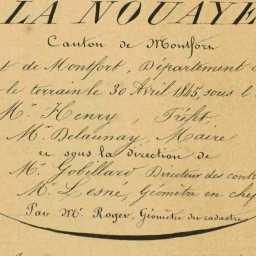 LA NOUAYE
Canton de Montfort
t de Montfort, Département
le terrain le 30 Avril 1845, sous l
Mr. Henry, Préfet
Mr. Delaunay, Maire
et sous la direction de
Mr. Gobillard Directeur des cont
Mr. Lesné, Géomètre en chef
Par Mr. Roger, Géomètre du cadastre